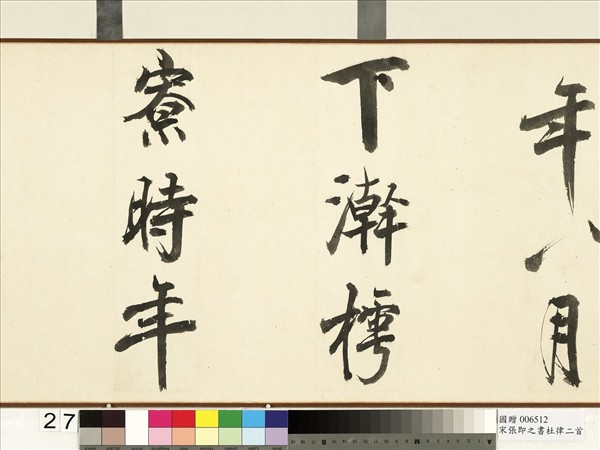 年八月
下澣樗
寮時年
27
國贈 006512
宋張即之書杜律二首